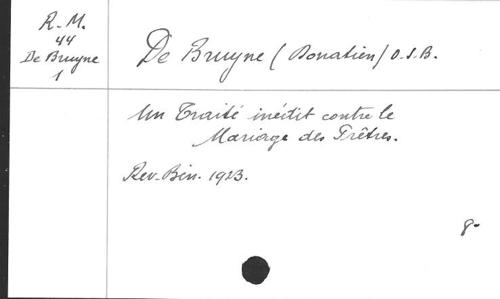 R. M.
44
De Bruyne
1
De Bruyne (Donatien) O.S.B.
Un Traité inédit contre le
Mariage des Prêtres.
Rev. Bén. 1923.
8°